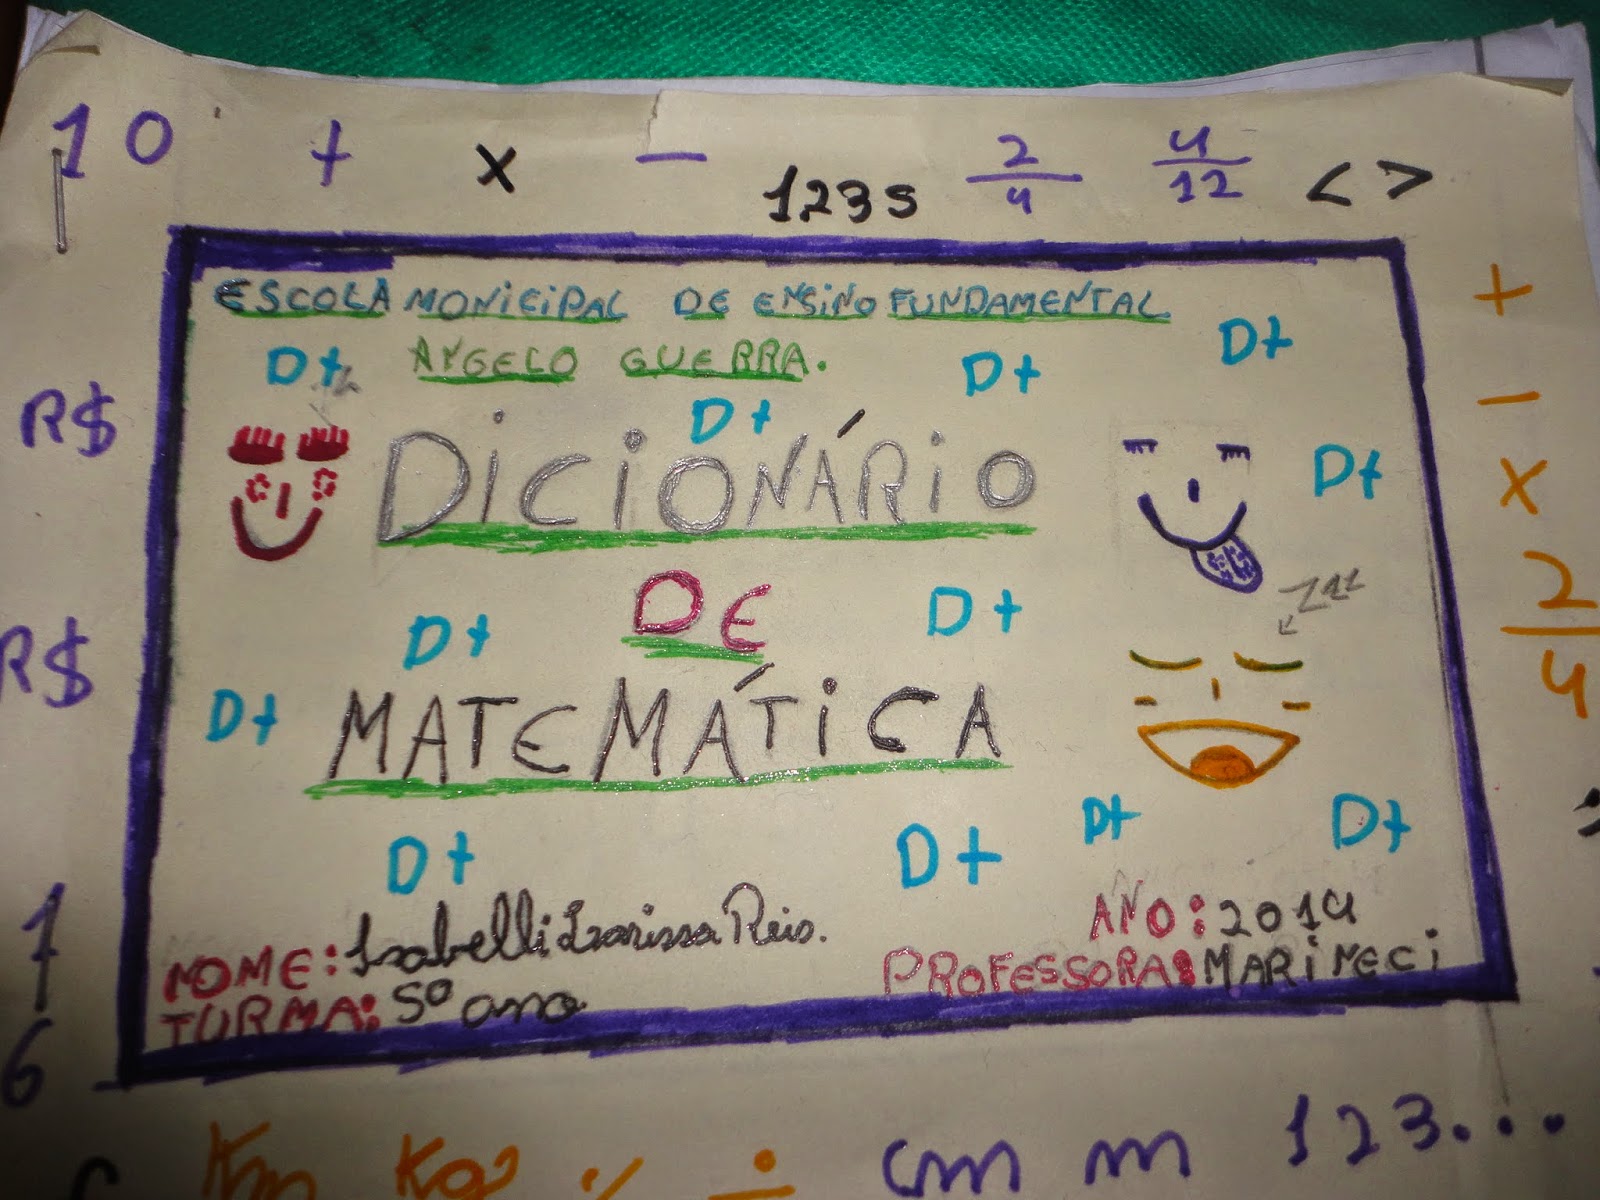 10 + x − 123s 2/4 4/12 < >
ESCOLA MONICIPAL DE ENSINO FUNDAMENTAL
ANGELO GUERRA.
D+ D+ D+ D+
R$ DICIONÁRIO D+
+ − x 2/4
DE
D+ D+ zzz
R$ D+ MATEMÁTICA
D+ D+ D+ D+
NOME: Isabelli Larissa Reis. AÑO: 2014
TURMA: 5º ano PROFESSORA: MARINECI
1
6
Km Kg ÷ cm m 123...